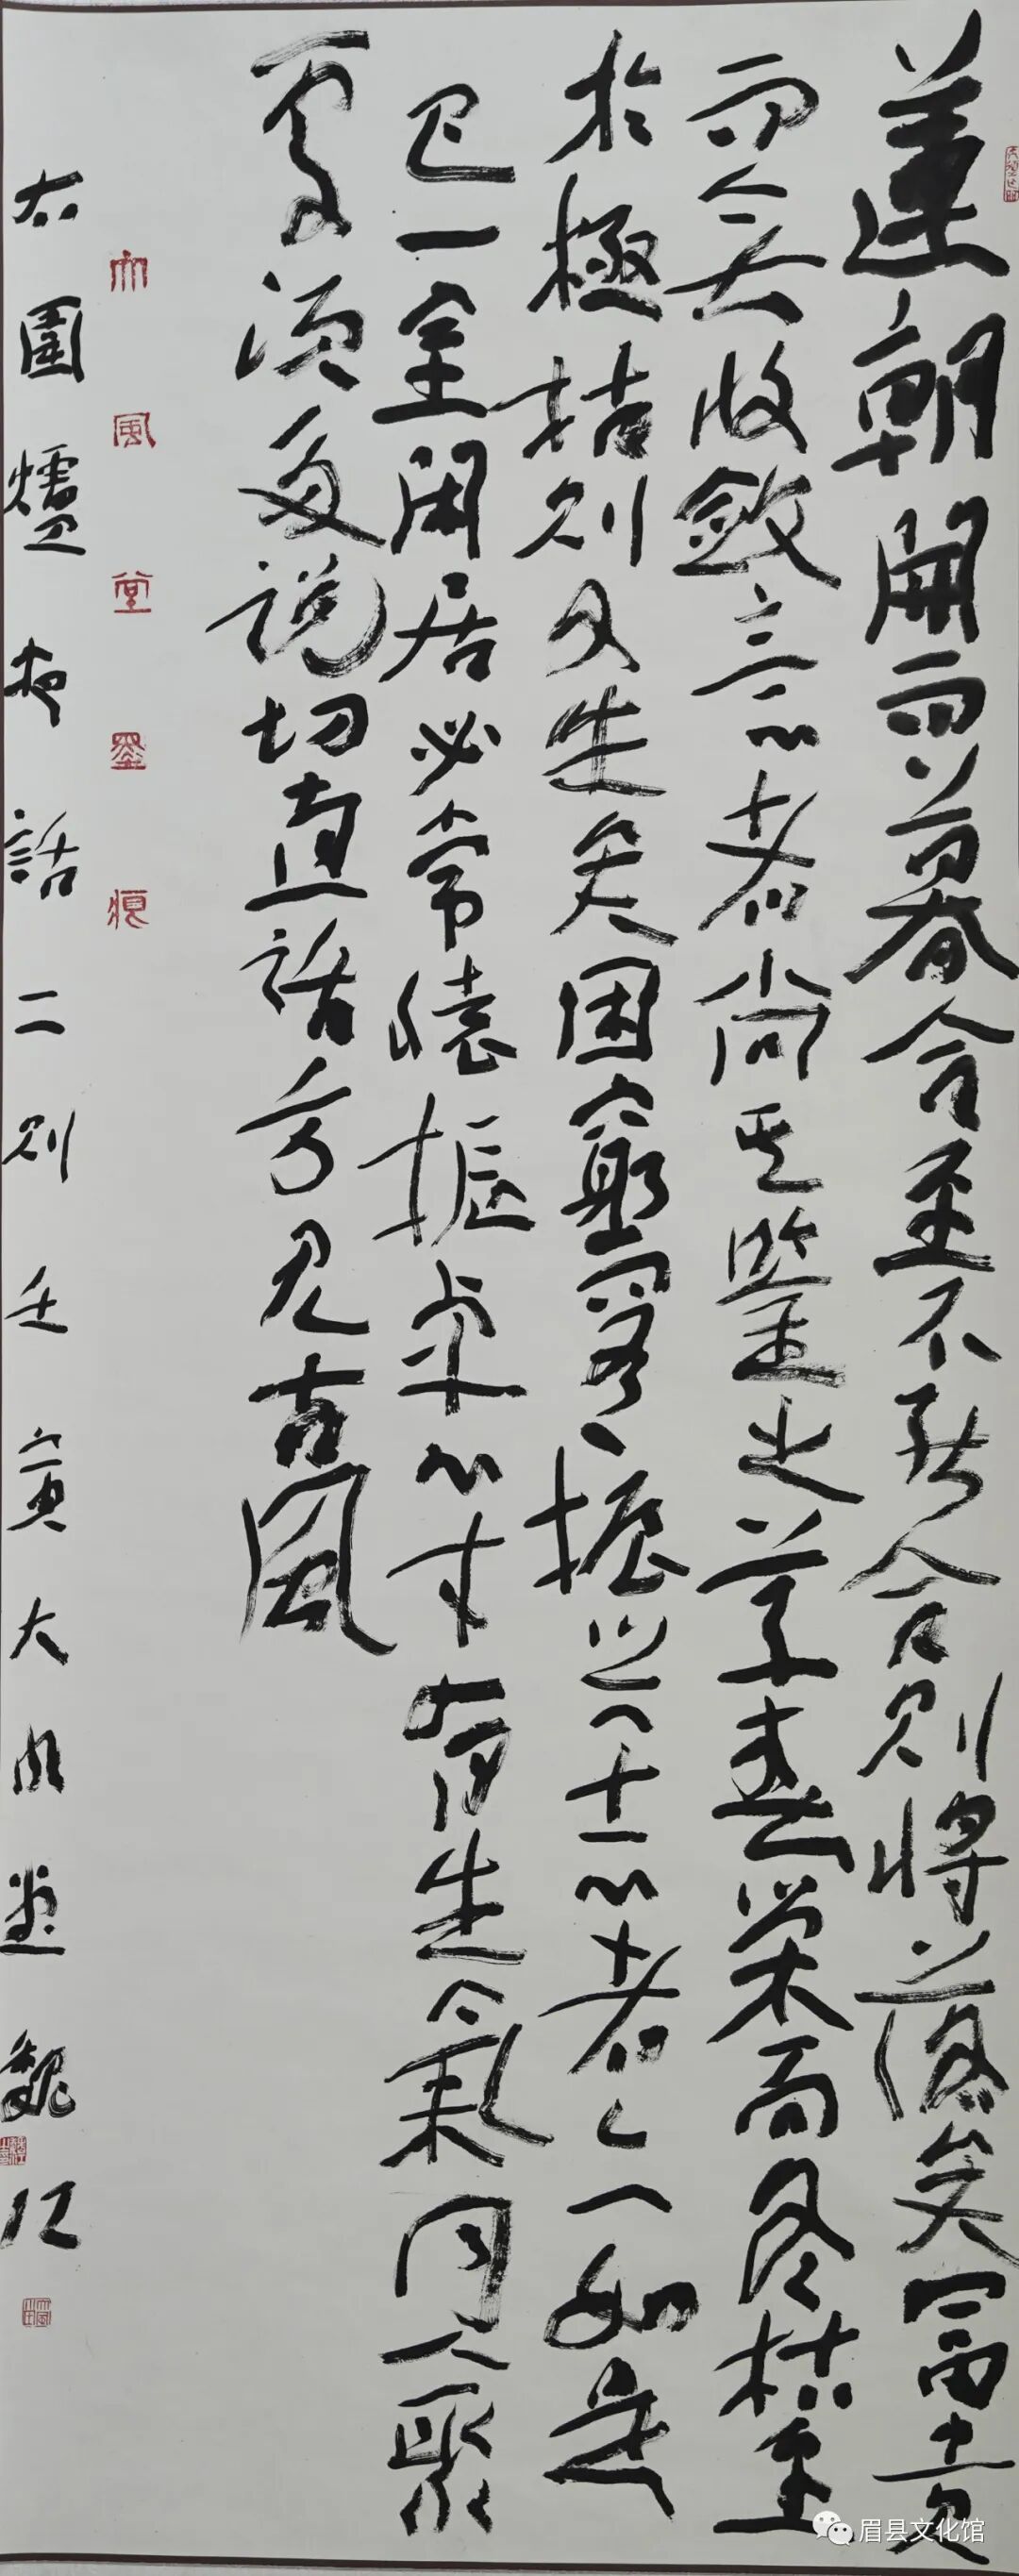 蓮朝開而暮合至不能合則將落矣富貴
而無收斂意者尚其鑒之草春榮而冬枯至
於極枯則又生矣困窮而有振興之志者亦如是
也一室閑居必常懷振卓心才有生氣同人聚
處須多說切直話方見古風
大風堂墨痕
右圍爐夜話二則壬寅大風堂魏江
眉县文化馆